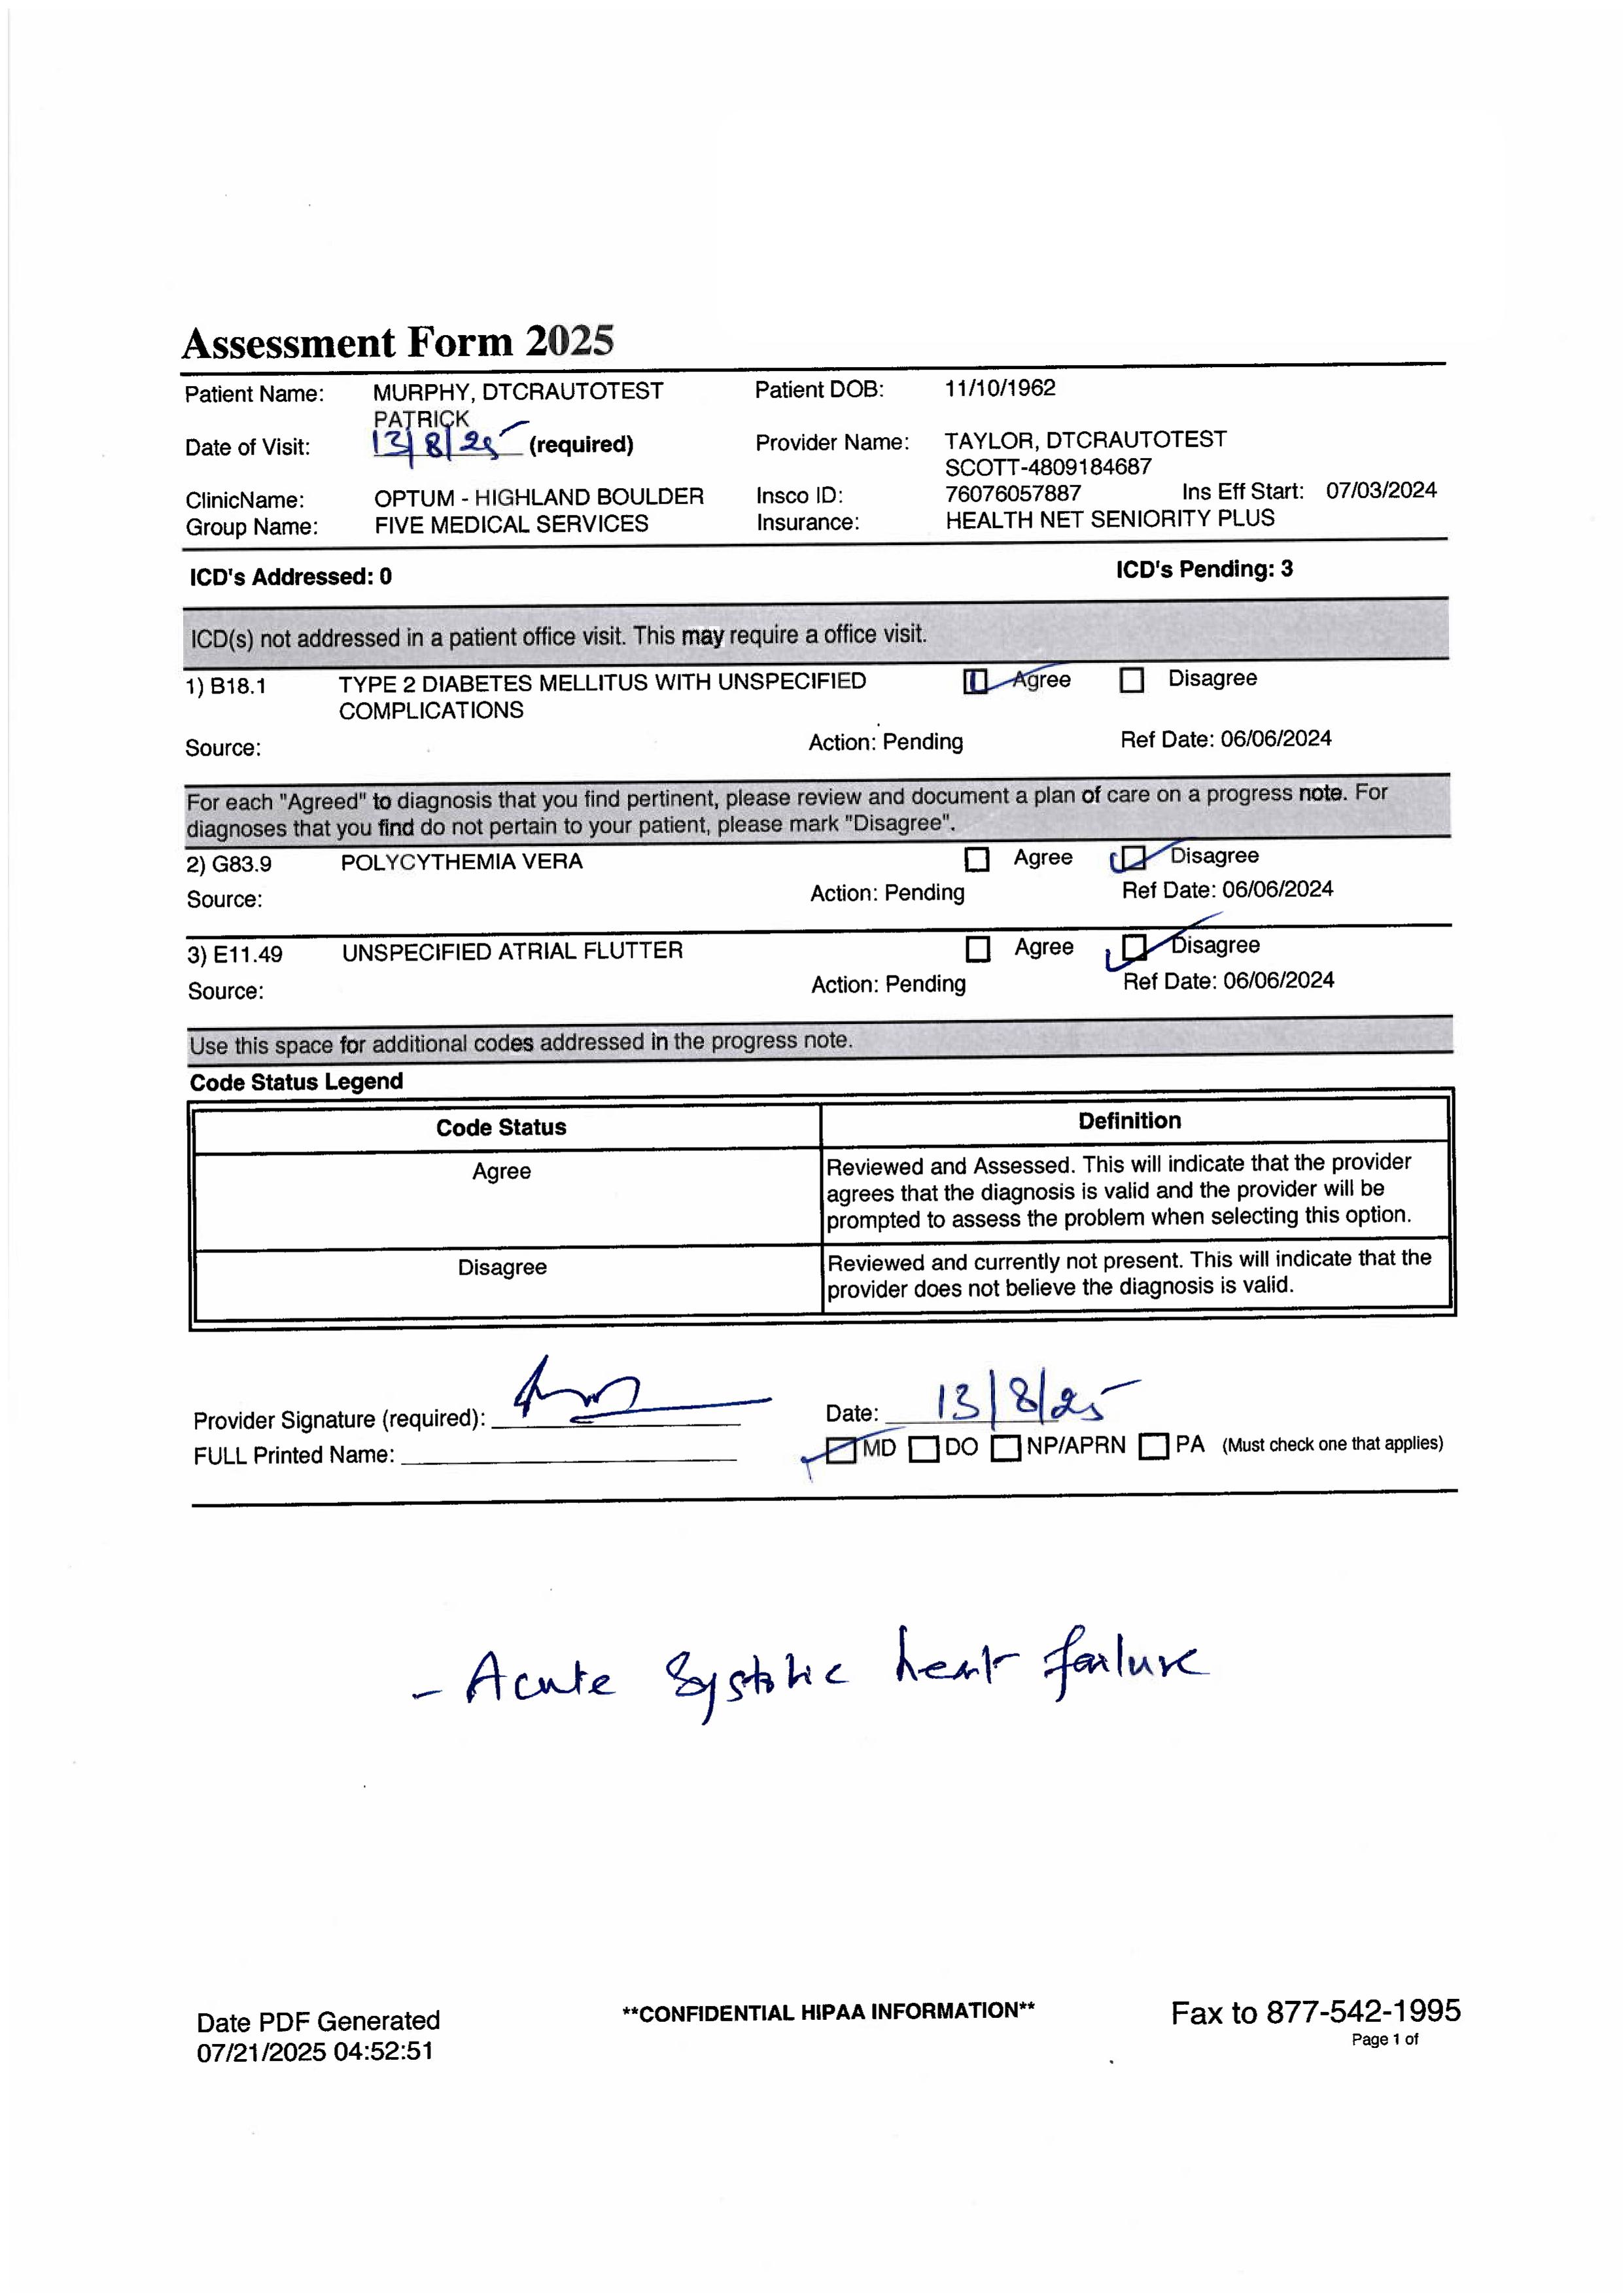 Assessment Form 2025
Patient Name: MURPHY, DTCRAUTOTEST PATRICK Patient DOB: 11/10/1962
Date of Visit: 13/8/25 (required) Provider Name: TAYLOR, DTCRAUTOTEST SCOTT-4809184687
ClinicName: OPTUM - HIGHLAND BOULDER Insco ID: 76076057887 Ins Eff Start: 07/03/2024
Group Name: FIVE MEDICAL SERVICES Insurance: HEALTH NET SENIORITY PLUS
ICD's Addressed: 0 ICD's Pending: 3
ICD(s) not addressed in a patient office visit. This may require a office visit.
1) B18.1 TYPE 2 DIABETES MELLITUS WITH UNSPECIFIED COMPLICATIONS Agree Disagree
Source: Action: Pending Ref Date: 06/06/2024
For each "Agreed" to diagnosis that you find pertinent, please review and document a plan of care on a progress note. For
diagnoses that you find do not pertain to your patient, please mark "Disagree".
2) G83.9 POLYCYTHEMIA VERA Agree Disagree
Source: Action: Pending Ref Date: 06/06/2024
3) E11.49 UNSPECIFIED ATRIAL FLUTTER Agree Disagree
Source: Action: Pending Ref Date: 06/06/2024
Use this space for additional codes addressed in the progress note.
Code Status Legend
Code Status Definition
Agree Reviewed and Assessed. This will indicate that the provider
agrees that the diagnosis is valid and the provider will be
prompted to assess the problem when selecting this option.
Disagree Reviewed and currently not present. This will indicate that the
provider does not believe the diagnosis is valid.
Provider Signature (required): Date: 13/8/25
FULL Printed Name: MD DO NP/APRN PA (Must check one that applies)
- Acute Systolic heart failure
Date PDF Generated **CONFIDENTIAL HIPAA INFORMATION** Fax to 877-542-1995
07/21/2025 04:52:51 Page 1 of